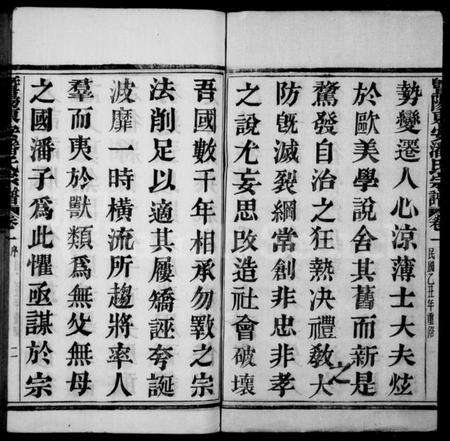 暨陽東安潘氏宗譜 卷一 民國乙丑年重修
勢變遷人心涼薄士大夫炫
於歐美學說舍其舊而新是
騖發自治之狂熱決禮教大
之
防旣滅裂綱常創非忠非孝
之說尤妄思改造社會破壞
吾國數千年相承勿斁之宗
法削足以適其屨矯誣夸誕
波靡一時橫流所趨將率人
羣而夷於獸類爲無父無母
之國潘子爲此懼亟謀於宗
暨陽東安潘氏宗譜 卷一 序 二